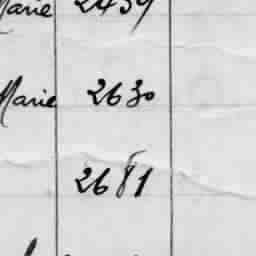 Marie 2439
Marie 2630
2681